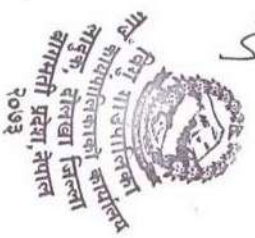 विगु गाउँपालिका
गाउँ कार्यपालिकाको कार्यालय
लादुक, दोलखा जिल्ला
बागमती प्रदेश, नेपाल
२०७३